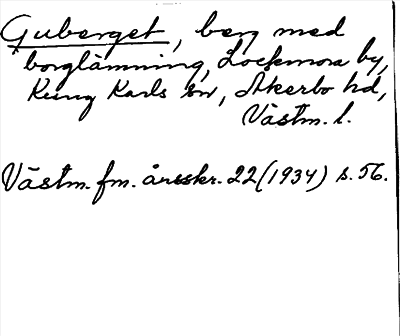 Guberget, berg med
borglämning, Lockmora by,
Kung Karls sn, Åkerbo hd,
Västm. l.
Västm. fm. årsskr. 22 (1934) s. 56.